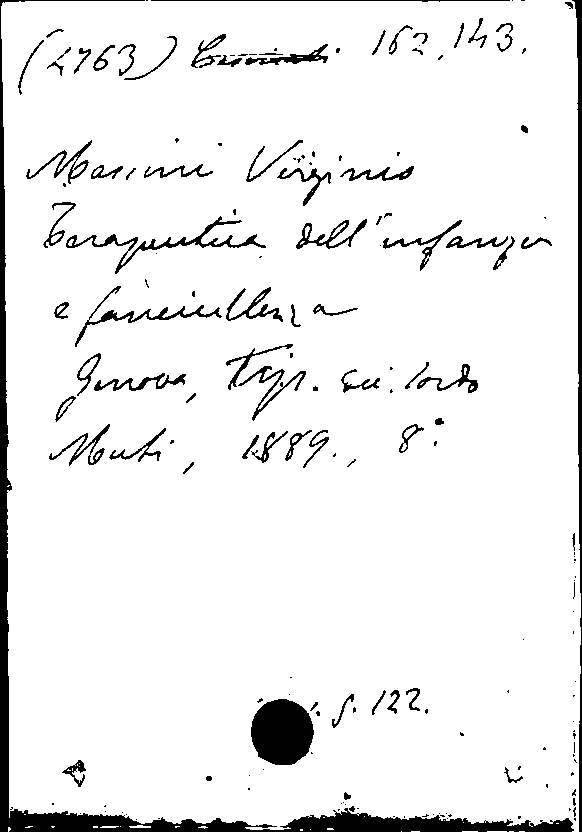 (2763) 162.143.
Massini Virginio
Terapeutica dell'infanzia
e fanciullezza
Genova, tip. sordo
Muti, 1889., 8°.
S. 122.